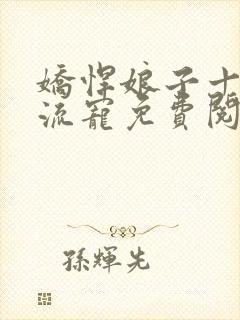 嬌悍娘子十
流寵免費閱
孫輝先